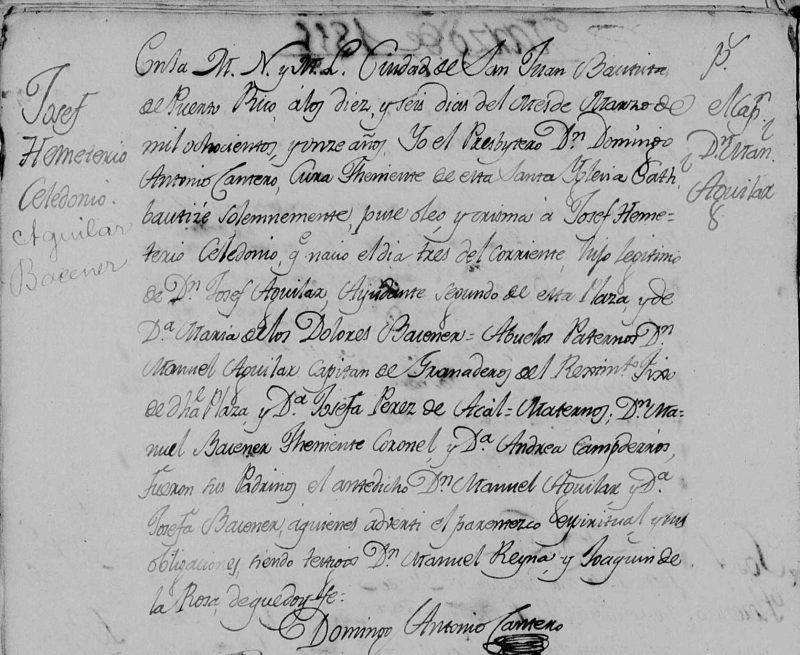 Josef
Hemeterio
Celedonio.
Aguilar
Bacener
En la M. N. y M. L. Ciudad de San Juan Bautista
de Puerto Rico, á los diez, y seis dias del Mes de Marzo de
mil ochocientos, y onze años. Yo el Presbytero Dn Domingo
Antonio Cantero, Cura Theniente de esta Santa Yglesia Cath
bautizé solemnemente, puse oleo, y crisma à Josef Heme=
terio Celedonio, q.e nacio el dia tres del corriente, hijo legitimo
de Dn Josef Aguilar, Ayudante segundo de esta Plaza, y de
D.a Maria de los Dolores Bacener = Abuelos Paternos Dn
Manuel Aguilar Capitan de Granaderos del Reximto Fixo
de dha Plaza y D.a Josefa Perez de Acál = Maternos; Dn Ma-
nuel Bacener Theniente Coronel, y D.a Andrea Campderros,
Fueron sus Padrinos el antedicho Dn Manuel Aguilar y D.a
Josefa Bacener, àquienes adverti el parentezco espiritual y sus
obligaciones, siendo testigos Dn Manuel Reyna, y Joaquin de
la Rosa, de que doy fe =
Domingo Antonio Cantero
pr.
el Capn
Dn Man.
Aguilar